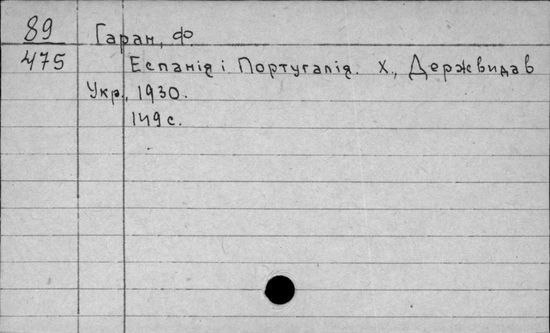 89 Гаран, Ф.
475 Еспанія і Португалія. Х., Держвидав
Укр., 1930.
149 с.